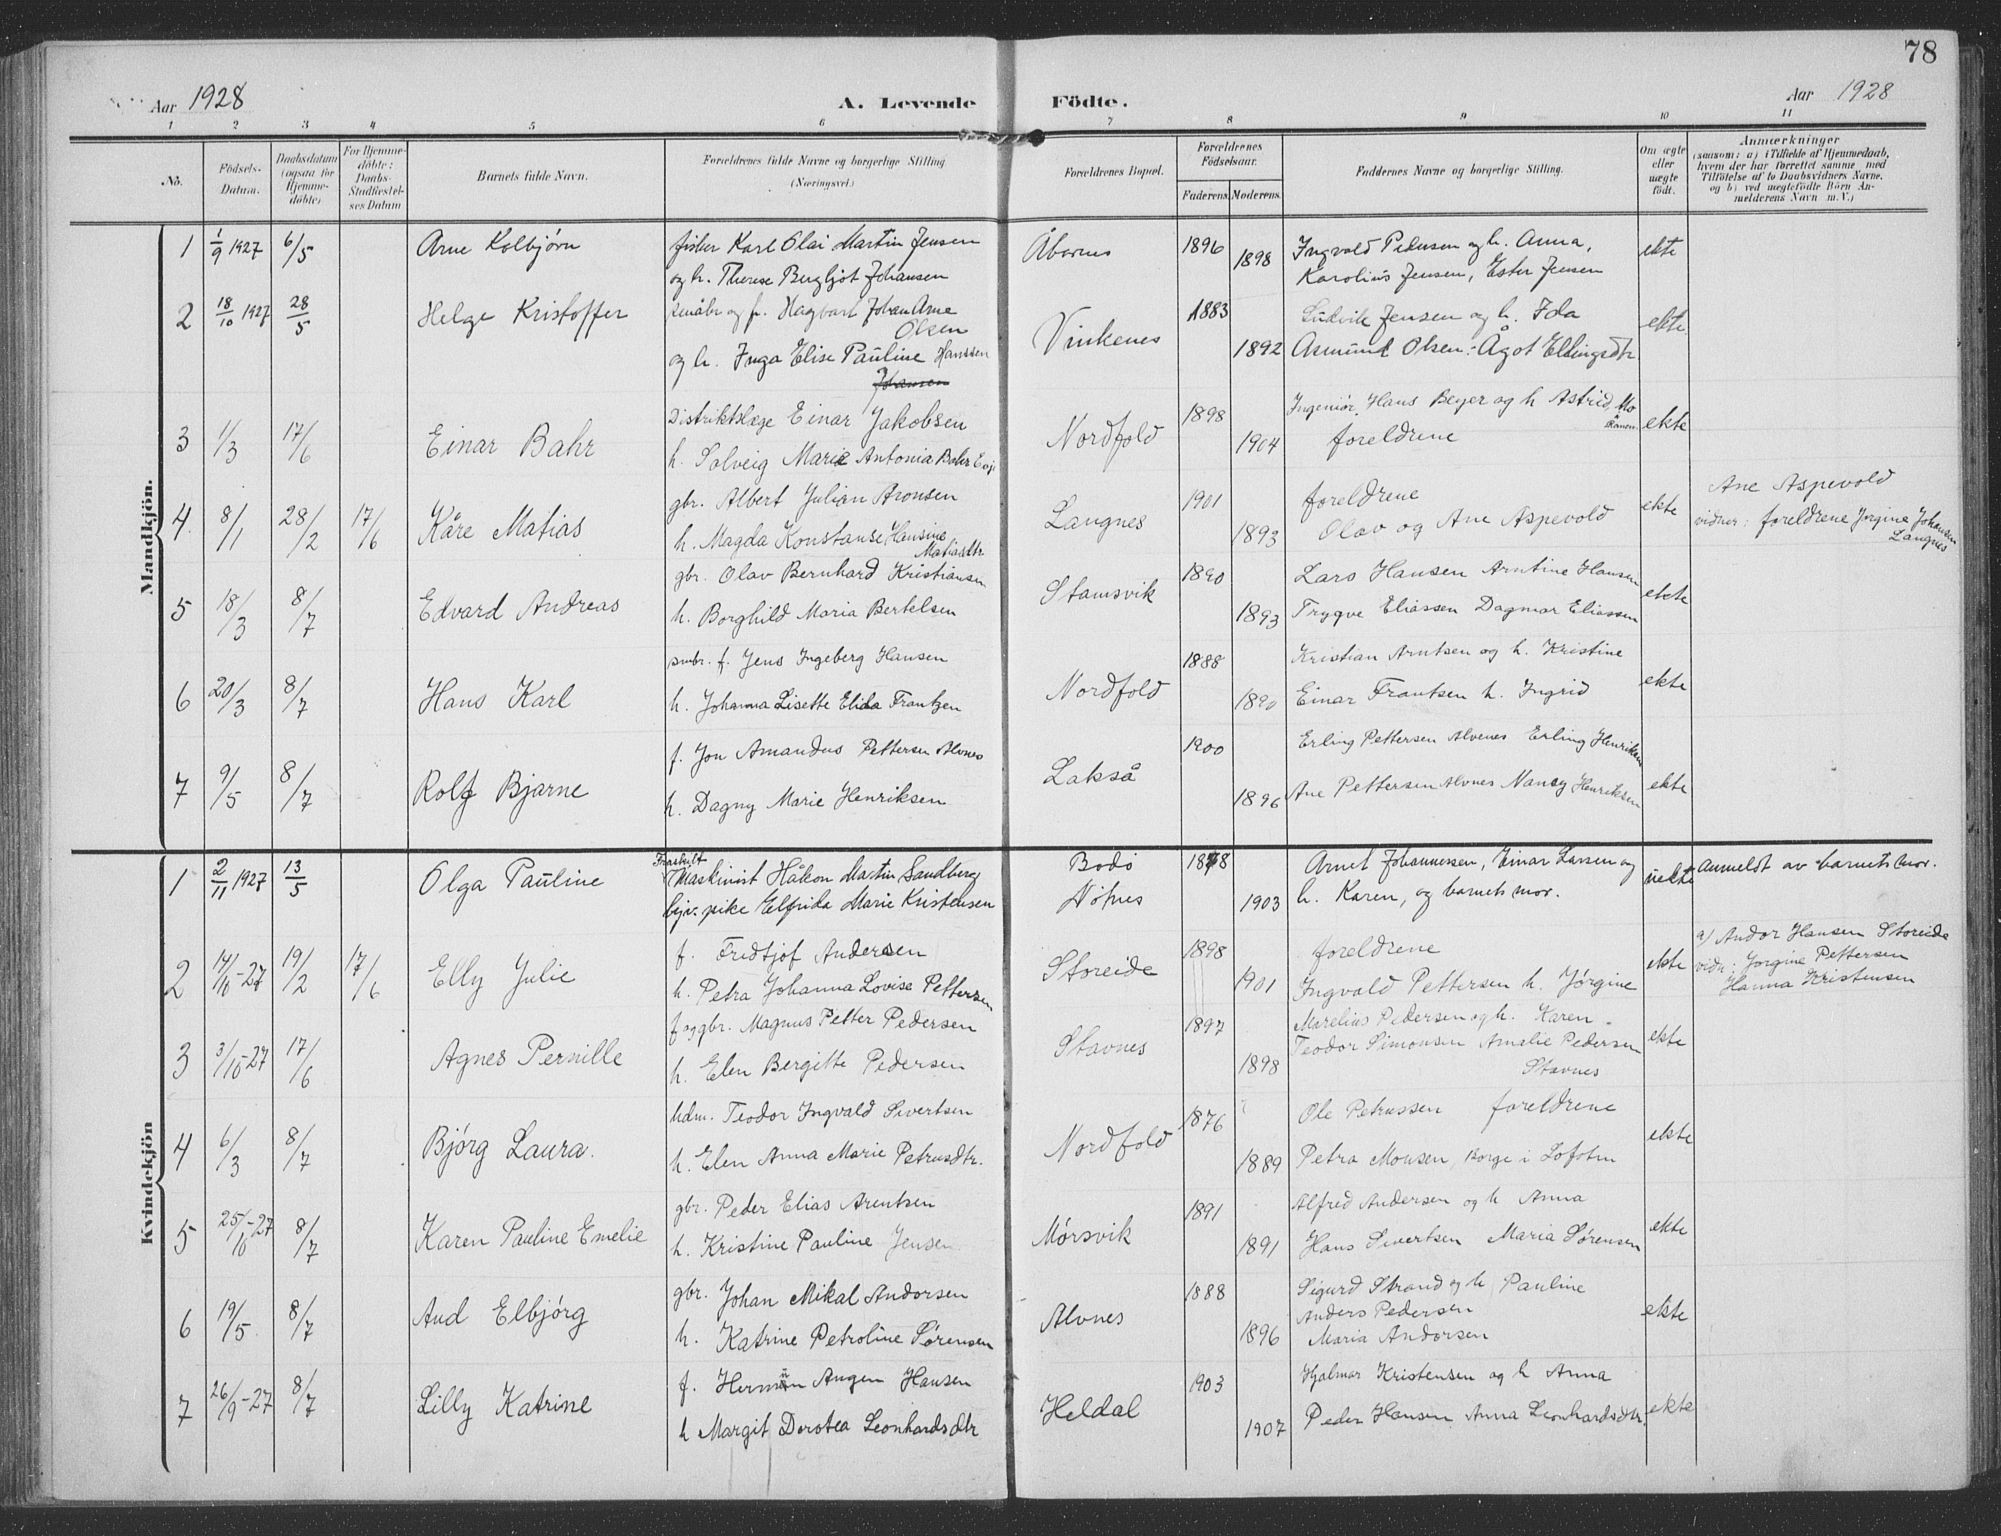 78
Aar 1928
A. Levende Födte.
Aar 1928
1 2 3 4 5 6 7 8 9 10 11
No.
Födsels-Datum.
Daabsdatum (ogsaa for Hjemme-döbte)
For Hjemme-döbte: Daabs-Stadfæstel-ses Datum
Barnets fulde Navn.
Forældrenes fulde Navne og borgerlige Stilling (Næringsvei.)
Forældrenes Bopæl.
Forældrenes Födselsaar.
Faderens. Moderens.
Faddernes Navne og borgerlige Stilling.
Om ægte eller uægte födt.
Anmærkninger
(saasom: a) i Tilfælde af Hjemmedaab, hvem der har forrettet samme med Tilföielse af to Daabsvidners Navne, og b) ved uægtefödte Börn An-melderens Navn m. V.)
Mandkjön.
1 1/9 1927 6/5 Arne Kolbjørn
fisker Karl Olai Martin Jensen
og h. Therese Bergljot Johansen
Åbornes 1896 1898
Ingvald Pedersen og h. Anna,
Karolius Jensen, Ester Jensen
ekte
2 18/10 1927 28/5 Helge Kristoffer
småbr og f. Hagbart Johan Arne
Olsen
og h. Inga Elise Pauline Hanssen
Johansen
Vinkenes 1883 1892
Ludvik Jensen og h. Ida
Asmund Olsen. Ågot Ellingsdtr.
ekte
3 1/3 17/6 Einar Bahr
Distriktslæge Einar Jakobsen
h. Solveig Marie Antonia Bahr
Nordfold 1898 1904
Ingeniør Hans Beyer og h Astrid, Mo
foreldrene
ekte
4 8/1 28/2 17/6 Kåre Matias
gbr. Albert Julian Aronsen
h. Magda Konstanse Hansine
Matiasdtr
Langnes 1901 1893
foreldrene
Olav og Ane Aspevold
ekte
Ane Aspevold
vidner: foreldrene Jørgine Johansen
Langnes
5 18/3 8/7 Edvard Andreas
gbr. Olav Bernhard Kristiansen
h. Borghild Maria Bertelsen
Stamsvik 1890 1893
Lars Hansen Arntine Hansen
Trygve Eliassen Dagmar Eliassen
ekte
6 20/3 8/7 Hans Karl
smbr. f. Jens Ingeberg Hansen
h. Johanna Lisette Elida Frantzen
Nordfold 1888 1890
Kristian Arntsen og h. Kristine
Einar Frantsen h. Ingrid
ekte
7 9/5 8/7 Rolf Bjarne
f. Jon Amandus Pettersen Alvnes
h. Dagny Marie Henriksen
Lakså 1900 1896
Erling Pettersen Alvenes Erling Henriksen
Ane Pettersen Alvnes Nancy Henriksen
ekte
Kvindekjön
1 2/11 1927 13/5 Olga Pauline
Fraskilt
Maskinist Håkon Martin Sandberg
pike Elfrida Marie Kristensen
Bodö
Nötnes
1878 1903
Arnet Johannessen, Einar Larsen og
h. Karen, og barnets mor.
uekte
Anmeldt av barnets mor.
2 14/10-27 19/2 17/6 Elly Julie
f. Fredtjof Andersen
h. Petra Johanna Lovise Pettersen
Storeide 1898 1901
foreldrene
Ingvald Pettersen h. Jørgine
ekte
a) Andor Hansen Storeide
vidn: Jørgine Pettersen
Hanna Kristensen
3 3/10-27 17/6 Agnes Pernille
f og gbr. Magnus Petter Pedersen
h. Elen Bergitte Pedersen
Stavnes 1897 1898
Marelius Pedersen og h. Karen
Teodor Simonsen Amalie Pedersen
Stavnes
ekte
4 6/3 8/7 Bjørg Laura.
hdm. Teodor Ingvald Sivertsen
h. Elen Anna Marie Petrusdtr.
Nordfold 1876 1889
Ole Petrussen foreldrene
Petra Monsen, Borge i Lofoten
ekte
5 25/10-27 8/7 Karen Pauline Emelie
gbr. Peder Elias Arentsen
h. Kristine Pauline Jensen
Mørsvik 1891 1891
Alfred Andersen og h Anna
Hans Sivertsen Maria Sørensen
ekte
6 19/5 8/7 Aud Elbjørg
gbr. Johan Mikal Andorsen
h. Katrine Petroline Sørensen
Alvnes 1888 1896
Sigurd Strand og h, Pauline
Anders Pedersen
Maria Andorsen
ekte
7 26/9-27 8/7 Lilly Katrine
f. Hermun Angen Hansen
h Margit Dorotea Leonhardsdtr
Heldal 1903 1907
Hjalmar Kristensen og h Anna
Peder Hansen Anna Leonhardsdtr.
ekte